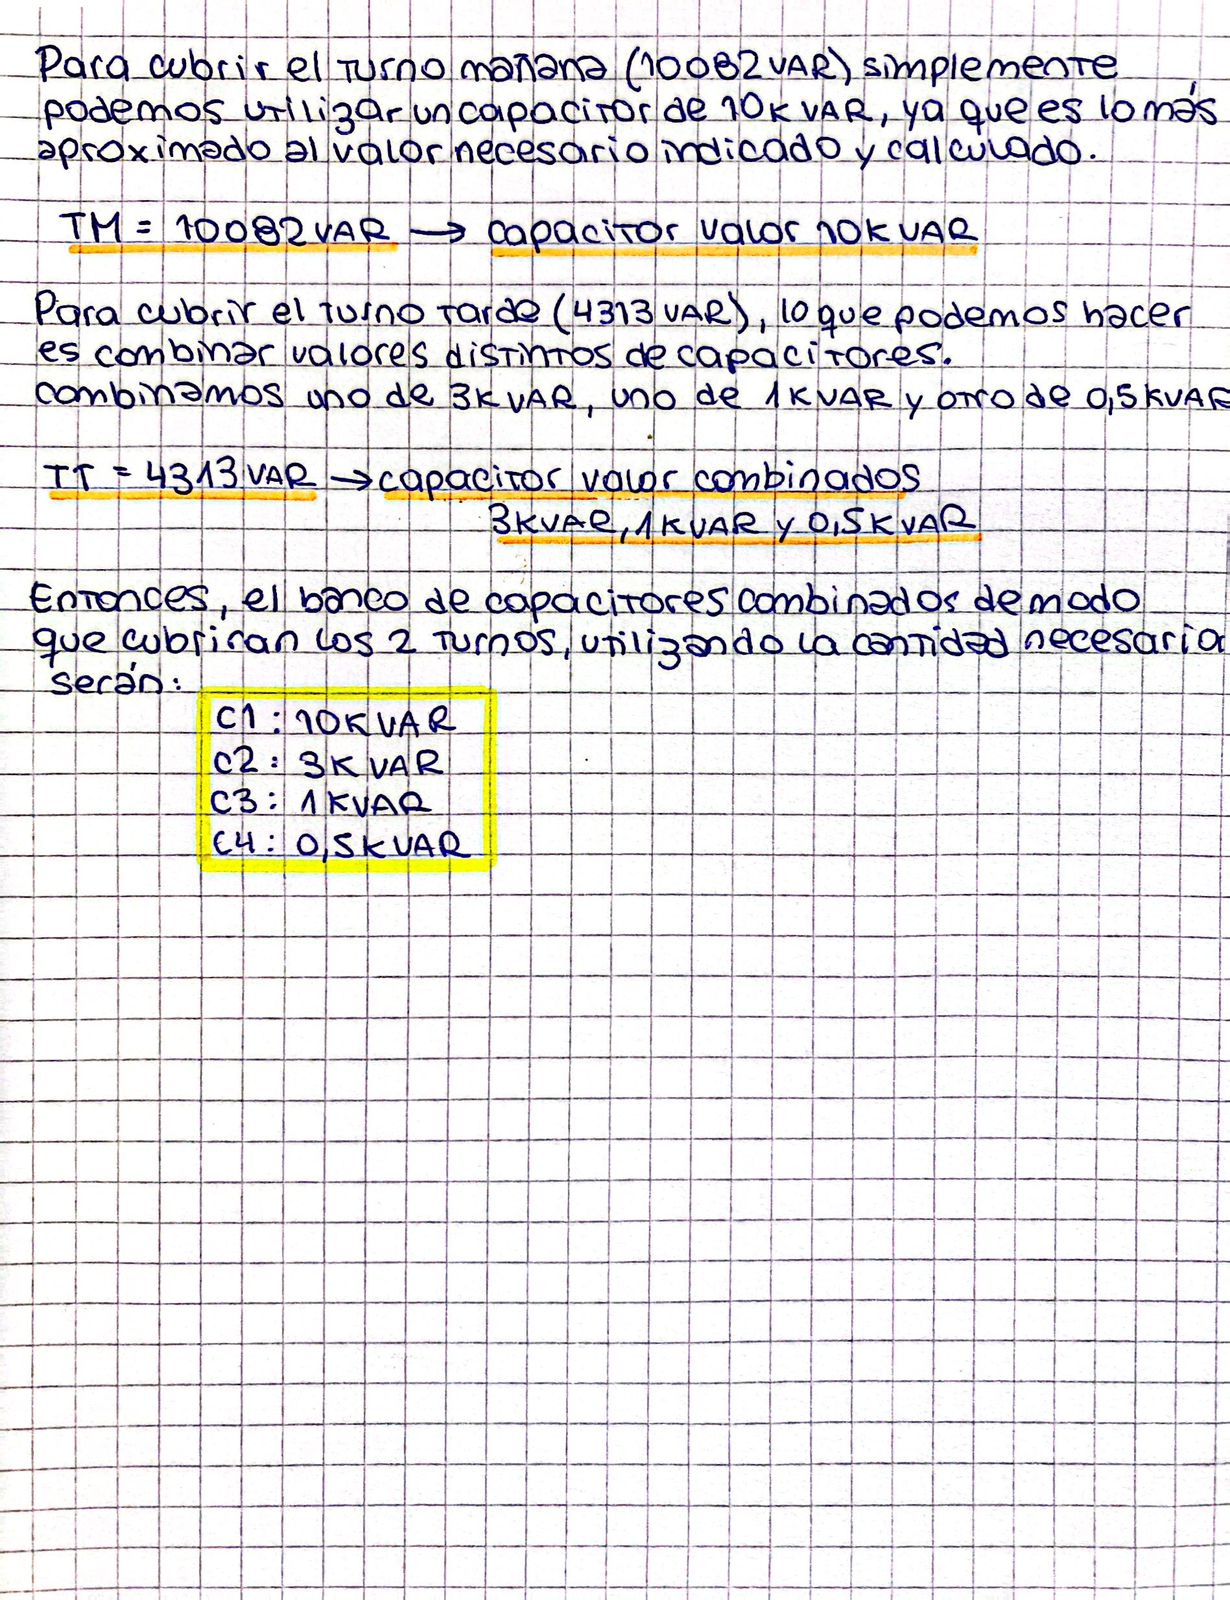 Para cubrir el turno mañana (10082 VAR) simplemente
podemos utilizar un capacitor de 10K VAR, ya que es lo más
aproximado al valor necesario indicado y calculado.
TM = 10082 VAR → capacitor valor 10K VAR
Para cubrir el turno tarde (4313 VAR), lo que podemos hacer
es combinar valores distintos de capacitores.
combinamos uno de 3K VAR, uno de 1K VAR y otro de 0,5K VAR
TT = 4313 VAR → capacitor valor combinados
3K VAR, 1K VAR y 0,5K VAR
Entonces, el banco de capacitores combinados de modo
que cubriran los 2 turnos, utilizando la cantidad necesaria
serán:
C1 : 10K VAR
C2 : 3K VAR
C3 : 1K VAR
C4 : 0,5K VAR